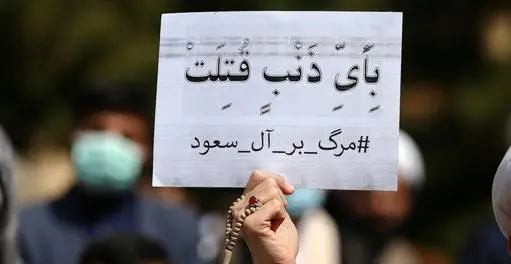 بِأَيِّ ذَنْبٍ قُتِلَتْ
#مرگ_بر_آل_سعود